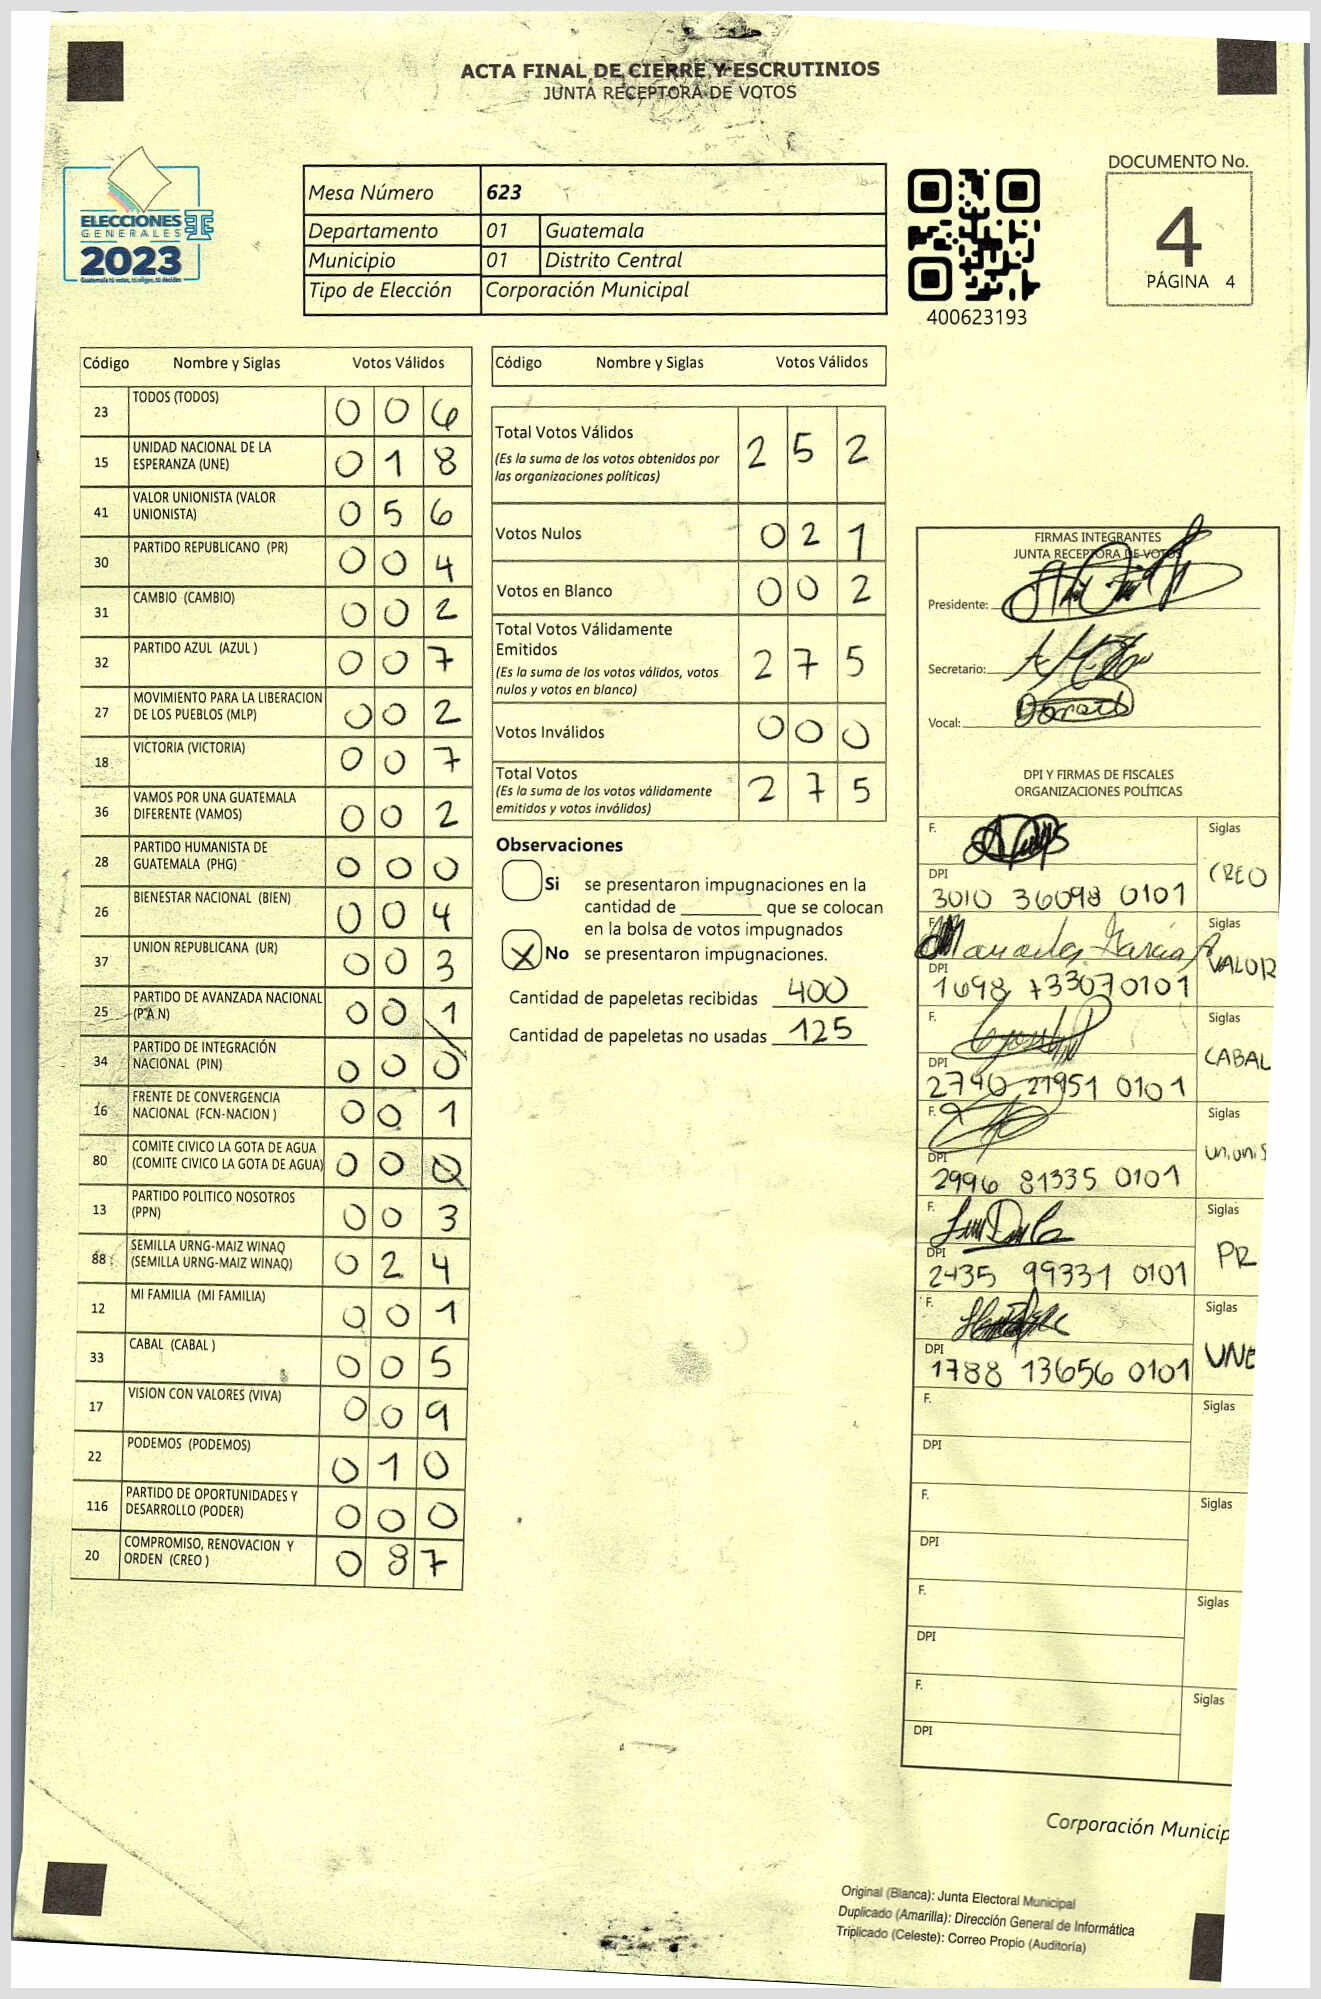 ACTA FINAL DE CIERRE Y ESCRUTINIOS
JUNTA RECEPTORA DE VOTOS
ELECCIONES
GENERALES
2023
Guatemala tú votas, tú eliges, tú decides
Mesa Número 623
Departamento 01 Guatemala
Municipio 01 Distrito Central
Tipo de Elección Corporación Municipal
400623193
DOCUMENTO No.
4
PÁGINA 4
Código Nombre y Siglas Votos Válidos
23 TODOS (TODOS) 0 0 6
15 UNIDAD NACIONAL DE LA ESPERANZA (UNE) 0 1 8
41 VALOR UNIONISTA (VALOR UNIONISTA) 0 5 6
30 PARTIDO REPUBLICANO (PR) 0 0 4
31 CAMBIO (CAMBIO) 0 0 2
32 PARTIDO AZUL (AZUL ) 0 0 7
27 MOVIMIENTO PARA LA LIBERACION DE LOS PUEBLOS (MLP) 0 0 2
18 VICTORIA (VICTORIA) 0 0 7
36 VAMOS POR UNA GUATEMALA DIFERENTE (VAMOS) 0 0 2
28 PARTIDO HUMANISTA DE GUATEMALA (PHG) 0 0 0
26 BIENESTAR NACIONAL (BIEN) 0 0 4
37 UNION REPUBLICANA (UR) 0 0 3
25 PARTIDO DE AVANZADA NACIONAL (P A N) 0 0 1
34 PARTIDO DE INTEGRACIÓN NACIONAL (PIN) 0 0 0
16 FRENTE DE CONVERGENCIA NACIONAL (FCN-NACION ) 0 0 1
80 COMITE CIVICO LA GOTA DE AGUA (COMITE CIVICO LA GOTA DE AGUA) 0 0 0
13 PARTIDO POLITICO NOSOTROS (PPN) 0 0 3
88 SEMILLA URNG-MAIZ WINAQ (SEMILLA URNG-MAIZ WINAQ) 0 2 4
12 MI FAMILIA (MI FAMILIA) 0 0 1
33 CABAL (CABAL ) 0 0 5
17 VISION CON VALORES (VIVA) 0 0 9
22 PODEMOS (PODEMOS) 0 1 0
116 PARTIDO DE OPORTUNIDADES Y DESARROLLO (PODER) 0 0 0
20 COMPROMISO, RENOVACION Y ORDEN (CREO ) 0 8 7
Código Nombre y Siglas Votos Válidos
Total Votos Válidos 2 5 2
(Es la suma de los votos obtenidos por
las organizaciones políticas)
Votos Nulos 0 2 1
Votos en Blanco 0 0 2
Total Votos Válidamente
Emitidos 2 7 5
(Es la suma de los votos válidos, votos
nulos y votos en blanco)
Votos Inválidos 0 0 0
Total Votos 2 7 5
(Es la suma de los votos válidamente
emitidos y votos inválidos)
Observaciones
Si se presentaron impugnaciones en la
cantidad de ________ que se colocan
en la bolsa de votos impugnados
X No se presentaron impugnaciones.
Cantidad de papeletas recibidas 400
Cantidad de papeletas no usadas 125
FIRMAS INTEGRANTES
JUNTA RECEPTORA DE VOTOS
Presidente:
Secretario:
Vocal:
DPI Y FIRMAS DE FISCALES
ORGANIZACIONES POLÍTICAS
F. Siglas
CREO
DPI
3010 36098 0101
F. Siglas
VALOR
DPI
1698 73307 0101
F. Siglas
CABAL
DPI
2790 21951 0101
F. Siglas
Unionis
DPI
2996 81335 0101
F. Siglas
PR
DPI
2435 99331 0101
F. Siglas
UNE
DPI
1788 13656 0101
F. Siglas
DPI
F. Siglas
DPI
F. Siglas
DPI
F. Siglas
DPI
Corporación Municip
Original (Blanca): Junta Electoral Municipal
Duplicado (Amarilla): Dirección General de Informática
Triplicado (Celeste): Correo Propio (Auditoría)